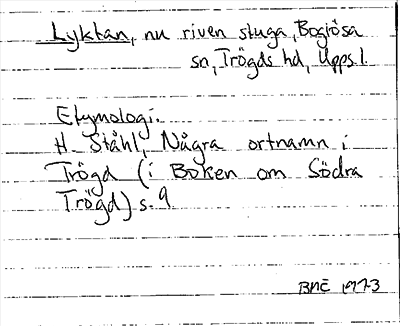 Lyktan, nu riven stuga, Boglösa
sn, Trögds hd, Upps. l.
Etymologi.
H. Ståhl, Några ortnamn i
Trögd (i Boken om Södra
Trögd) s. 9
1973